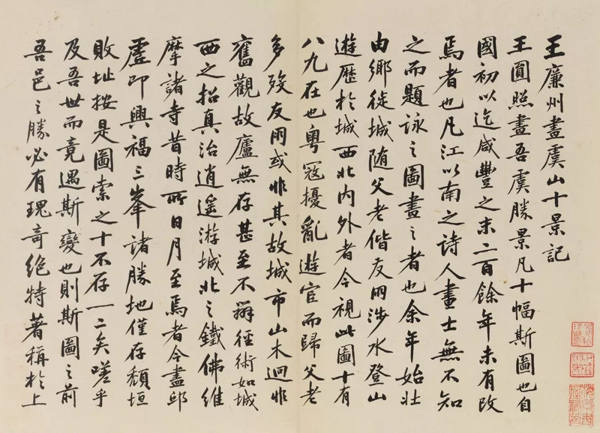 王廉州畫虞山十景記
王圓照畫吾虞勝景凡十幅斯圖也自
國初以迄咸豐之末二百餘年未有改
焉者也凡江以南之詩人畫士無不知
之而題詠之圖畫之者也余年始壯
由鄉徙城隨父老偕友朋涉水登山
遊歷於城西北內外者今視此圖十有
八九在也粵寇擾亂遊官而歸父老
多歿友朋或非其故城市山木迥非
舊觀故廬無存甚至不辨徑術如城
西之招真治逍遙游城北之鐵佛維
摩諸寺昔時所日月至焉者今盡邱
虛即興福三峯諸勝地僅存頹垣
敗址按是圖索之十不存一二矣嗟乎
及吾世而竟遇斯變也則斯圖之前
吾邑之勝必有瑰奇絕特著稱於上